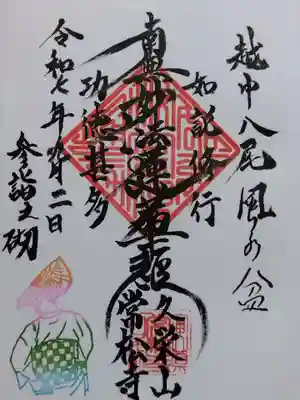 越中八尾風の盆
如説修行
南無妙法蓮華経
功徳甚多
令和七年九月二日
参詣之砌
久栄山
常松寺